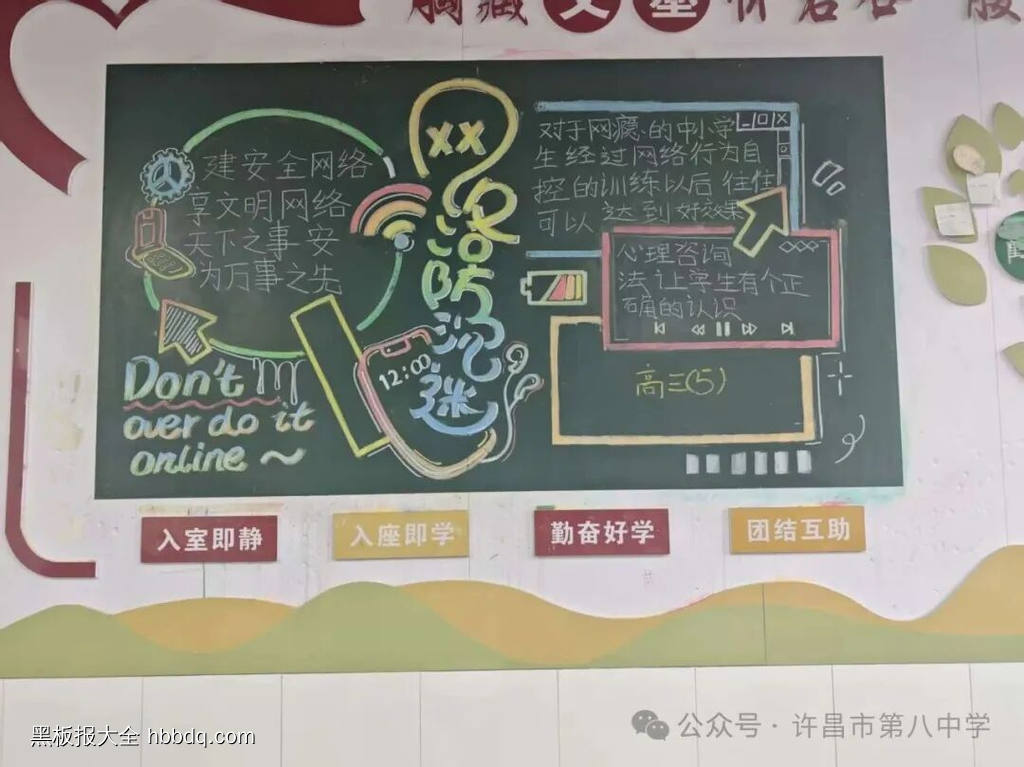 胸藏文墨怀若谷
建安全网络
享文明网络
天下之事安
为万事之先
Don't
over do it
online ~
网络防沉迷
12:00
对于网瘾的中小学
生经过网络行为自
控的训练以后往往
可以达到好效果
心理咨询
法让学生有个正
确的认识
高三(5)
入室即静
入座即学
勤奋好学
团结互助
黑板报大全 hbbdq.com
公众号·许昌市第八中学